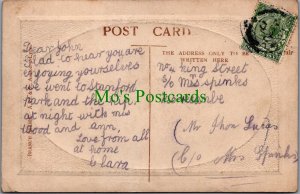 POST CARD
Dear John
Glad to hear you are
enjoying yourselves
we went to Stanford
park and the
at night with mis
Wood and ann,
Love from all
at home
Clara
THE ADDRESS ONLY TO BE
WRITTEN HERE
King Street
c/o Mrs Spinks
Mo's Postcards
(Mr Thos Lucas
c/o Mrs Spinks